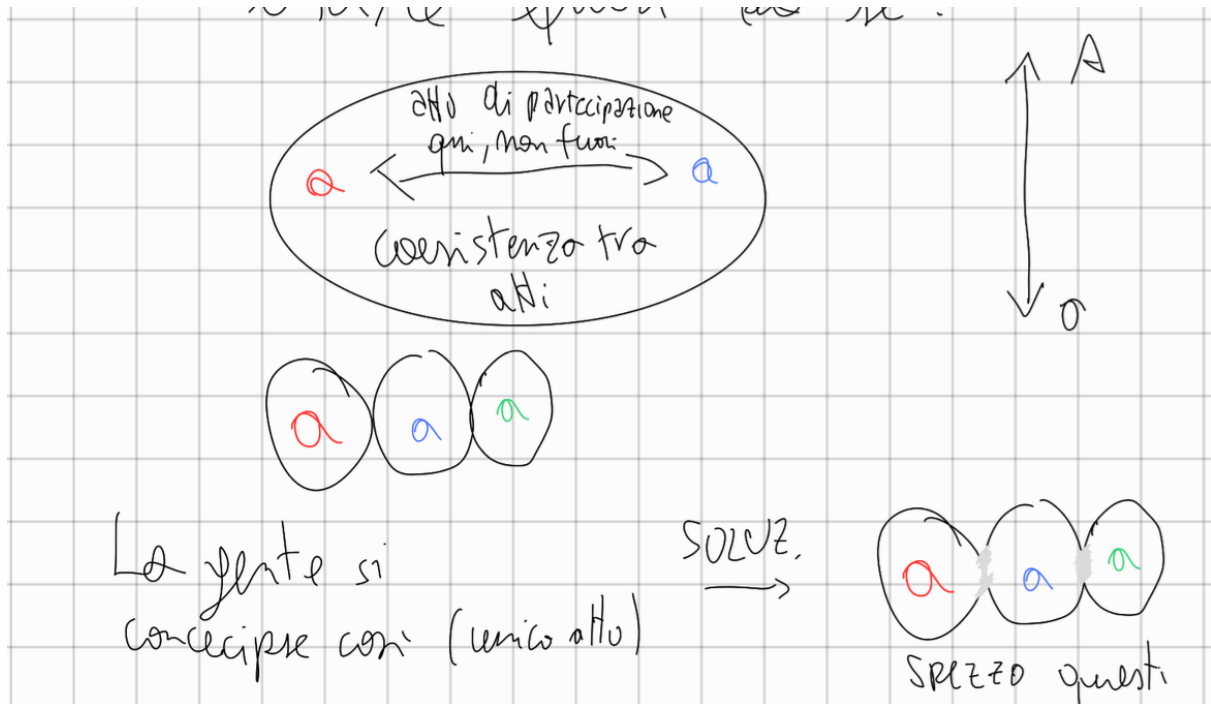 A
atto di partecipazione
qui, non fuori
a a
coesistenza tra
atti
o
a a a
La gente si
concecipse così (unico atto)
SOLUZ.
a a a
SPEZZO questi